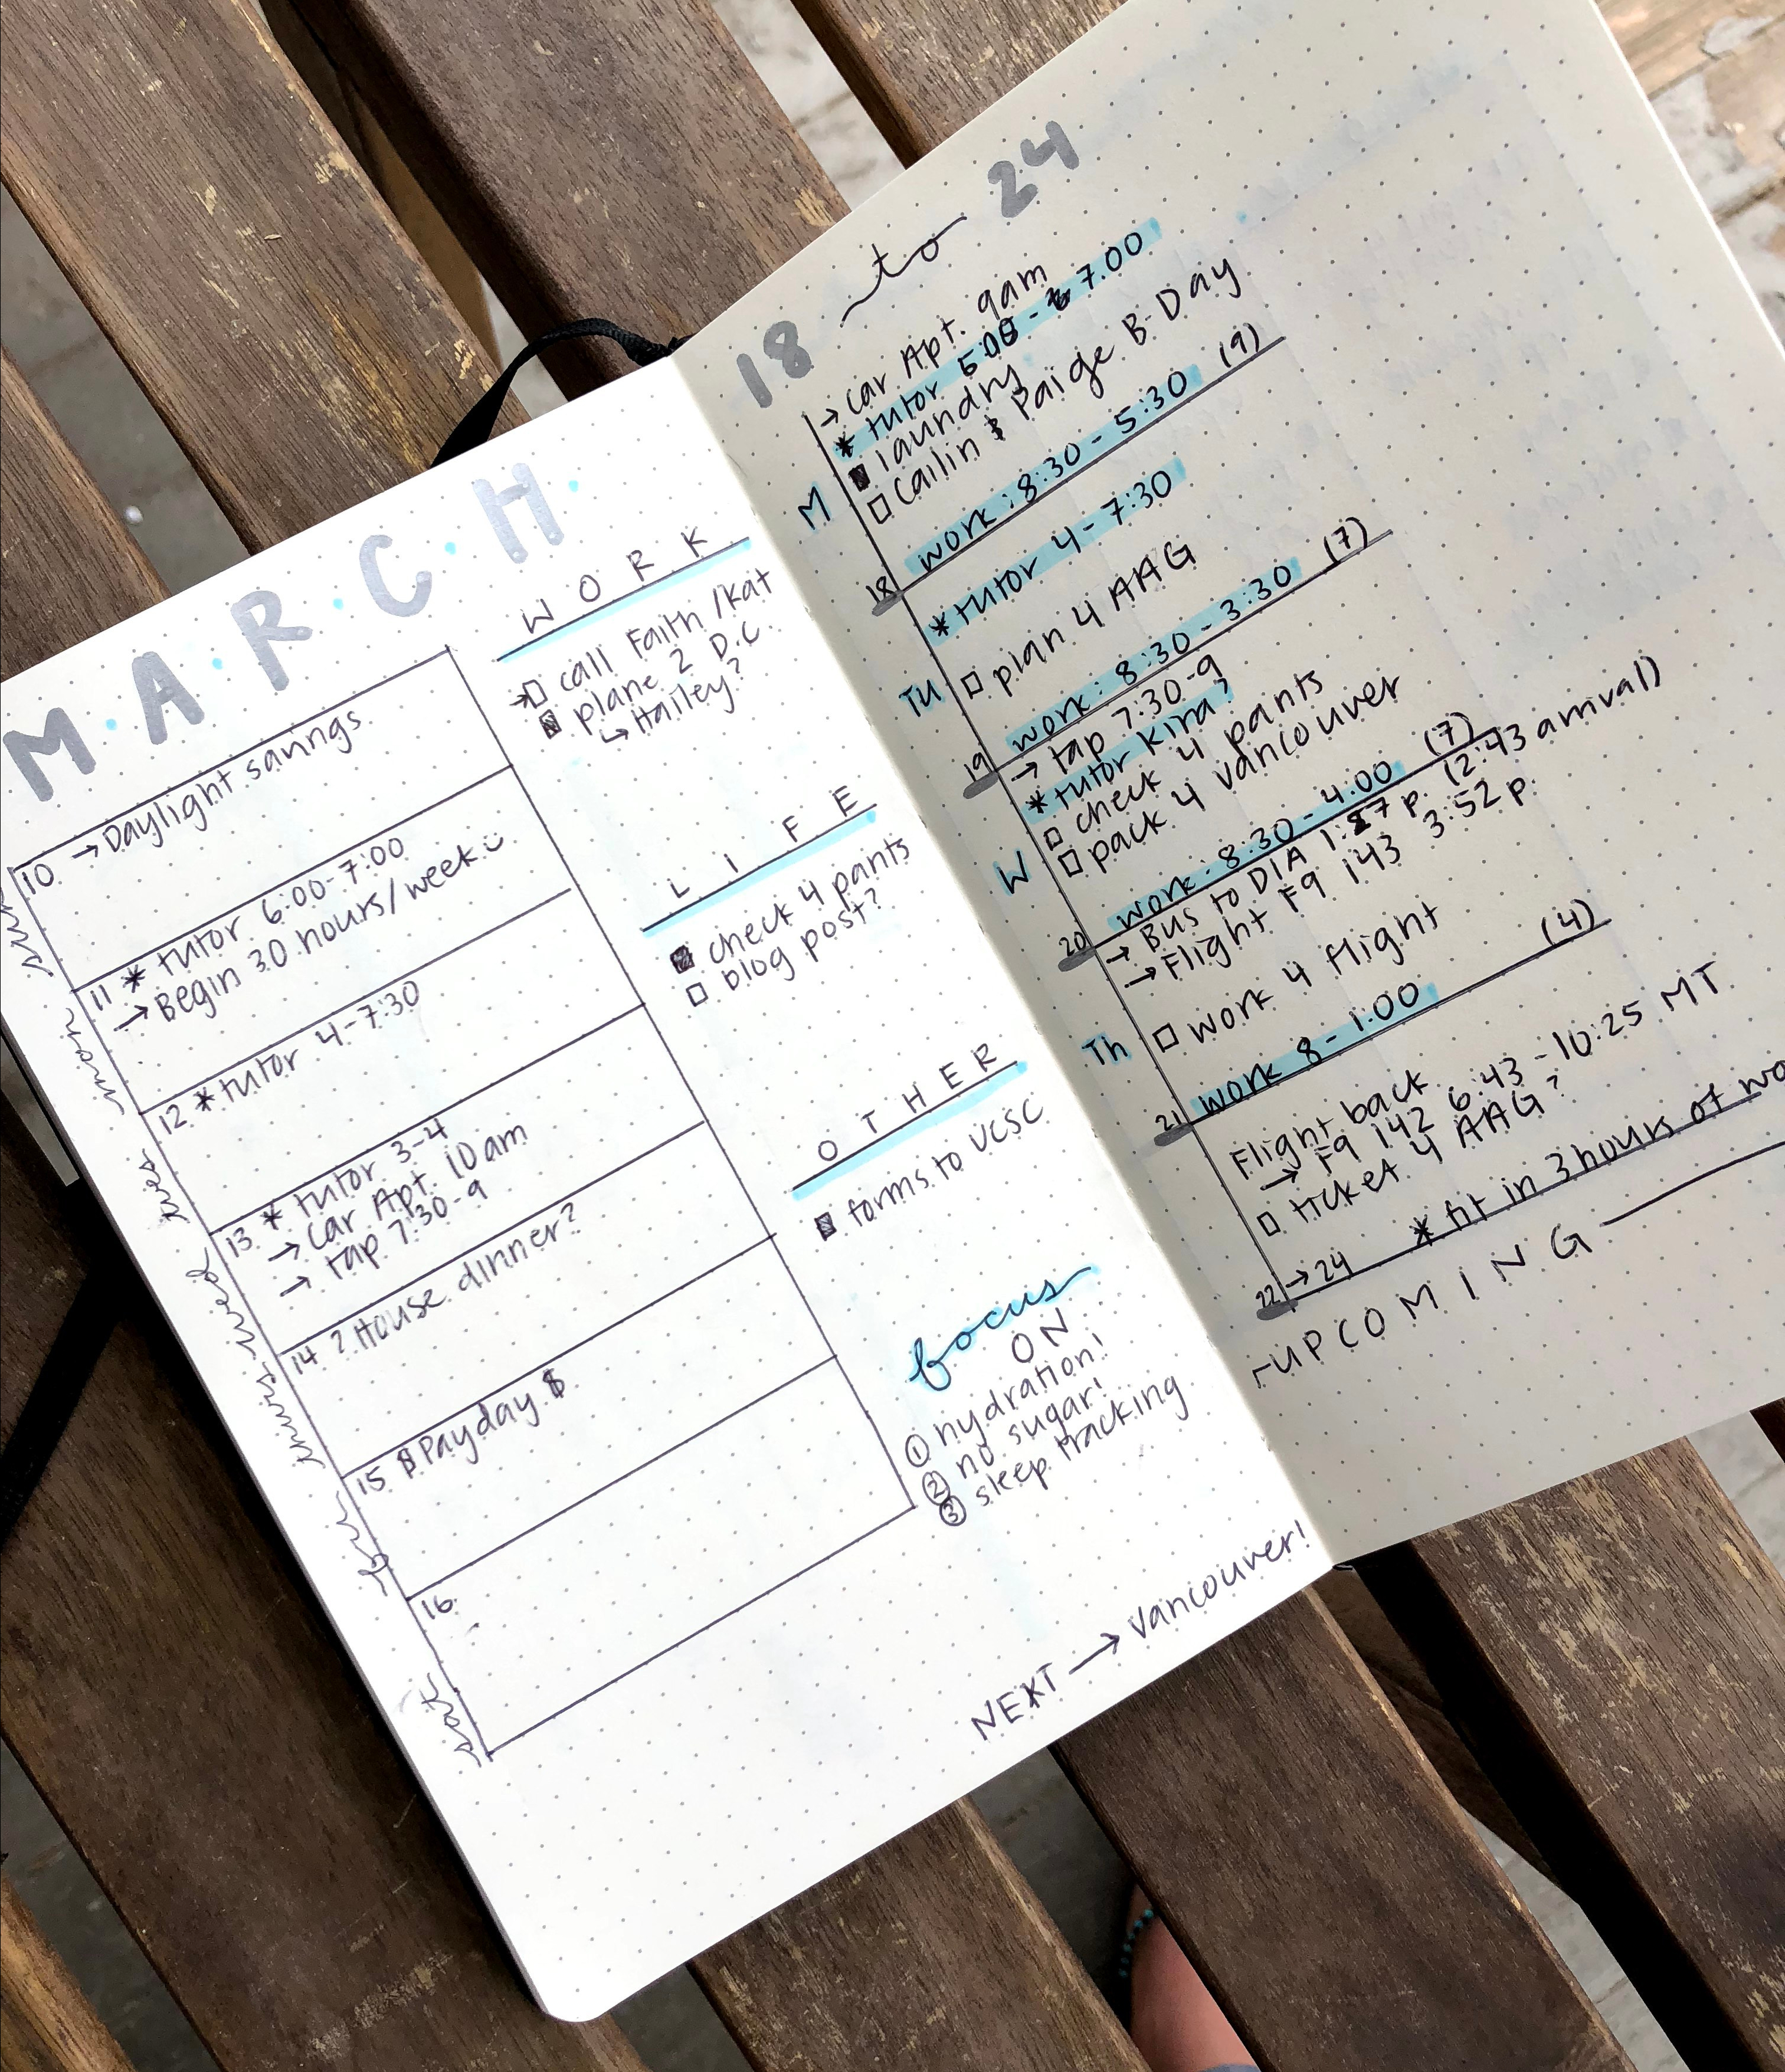 M·A·R·C·H·
10 → Daylight savings
sun
11 * tutor 6:00-7:00
→ Begin 30 hours/week
mon
12 * tutor 4-7:30
tues
13 * tutor 3-4
→ Car Apt. 10am
→ tap 7:30-9
wed
14 ? House dinner?
thurs
15 $ Payday $
fri
16.
sat
WORK
→ call Faith/Kat
plane 2 D.C.
↳ Hailey?
LIFE
check 4 pants
blog post?
OTHER
forms to UCSC
focus
ON
① hydration!
② no sugar!
③ sleep tracking
NEXT → Vancouver!
18 to 24
→ Car Apt. 9am
* tutor 5:00 - 7:00
laundry
Cailin & Paige B-Day
M
work: 8:30 - 5:30 (9)
18
* tutor 4-7:30
plan 4 AAG
Tu
work: 8:30 - 3:30 (7)
19
→ tap 7:30-9
* tutor Kira?
check 4 pants
pack 4 Vancouver
W
work: 8:30 - 4:00 (7)
20
→ Bus to DIA p. (2:43 arrival)
→ Flight F9 143 3:52 p.
work 4 flight
Th
work 8-1:00 (4)
21
Flight back
→ F9 142 6:43 - 10:25 MT
ticket 4 AAG?
* fit in 3 hours of wo
22 → 24
UPCOMING